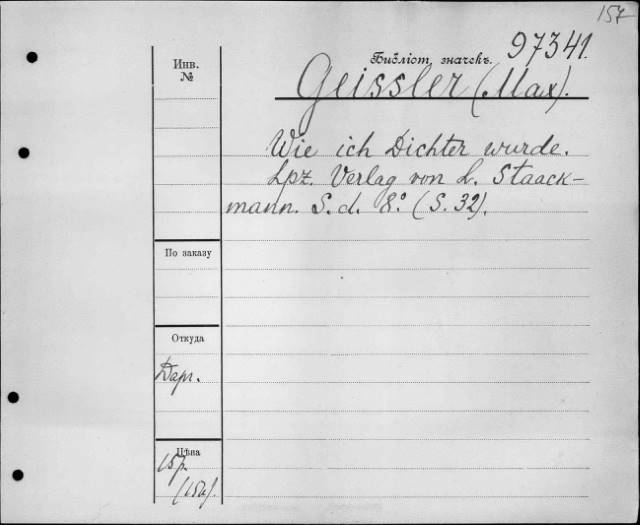 157
Инв. №
Библіот. значекъ. 97341.
Geissler (Max).
Wie ich Dichter wurde.
Lpz. Verlag von L. Staack-
mann. S. d. 8° (S. 32).
По заказу
Откуда
Цѣна